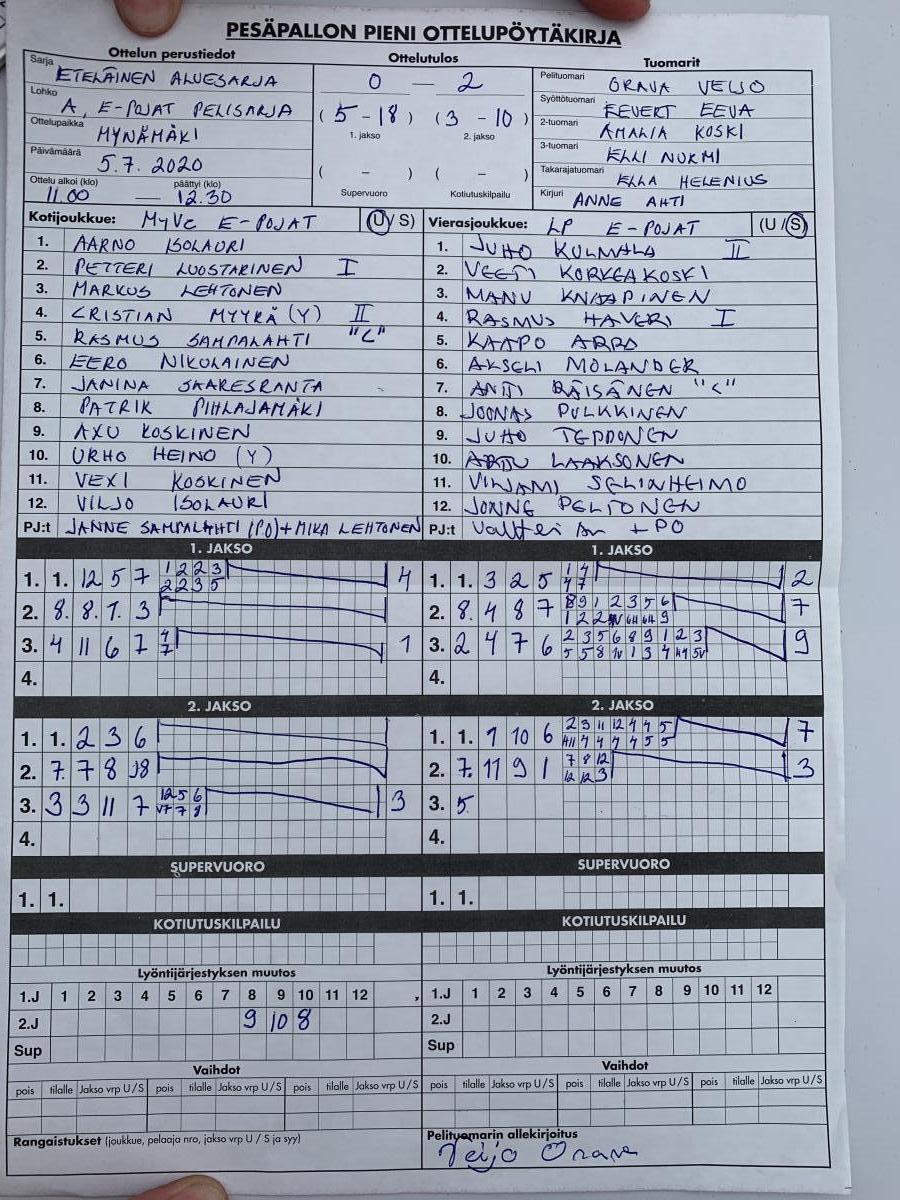 PESÄPALLON PIENI OTTELUPÖYTÄKIRJA
Ottelun perustiedot
Sarja ETELÄINEN ALUESARJA
Lohko A, E-POJAT PELISARJA
Ottelupaikka MYNÄMÄKI
Päivämäärä 5.7.2020
Ottelu alkoi (klo) päättyi (klo)
11.00 — 12.30
Ottelutulos
0 — 2
( 5 - 18 ) ( 3 - 10 )
1. jakso 2. jakso
( - ) ( - )
Supervuoro Kotiutuskilpailu
Tuomarit
Pelituomari ORAVA VEIJO
Syöttötuomari EEVERT EEVA
2-tuomari AMALIA KOSKI
3-tuomari ELLI NURMI
Takarajatuomari ELLA HELENIUS
Kirjuri ANNE AHTI
Kotijoukkue: MyVe E-POJAT (U/S)
1. AARNO ISOLAURI
2. PETTERI LUOSTARINEN I
3. MARKUS LEHTONEN
4. CRISTIAN MYYRÄ (Y) II
5. RASMUS SAMPALAHTI "C"
6. EERO NIKULAINEN
7. JANINA SAARESRANTA
8. PATRIK PIHLAJAMÄKI
9. AXU KOSKINEN
10. URHO HEINO (Y)
11. VEXI KOSKINEN
12. VILJO ISOLAURI
PJ:t JANNE SAMPALAHTI (PO)+MIKA LEHTONEN
Vierasjoukkue: LP E-POJAT (U/S)
1. JUHO KULMALA II
2. VEETI KORKEAKOSKI
3. MANU KNAAPINEN
4. RASMUS HAVERI I
5. KAAPO ARRO
6. AKSELI MOLANDER
7. ANTI RÄISÄNEN "C"
8. JOONAS PULKKINEN
9. JUHO TEPPONEN
10. ARTTU LAAKSONEN
11. VILJAMI SELINHEIMO
12. JONNE PELTONEN
PJ:t + PO
1. JAKSO
1. 1. 12 5 7 1 2 2 3 4
2 2 3 5
2. 8. 8. 1. 3
3. 4 11 6 7 4 1
7
4.
1. JAKSO
1. 1. 3 2 5 1 4 2
4 7
2. 8. 4 8 7 8 9 1 2 3 5 6 7
3. 2 4 7 6 2 3 5 6 8 9 1 2 3 9
4.
2. JAKSO
1. 1. 2 3 6
2. 7. 7 8 J8
3. 3 3 11 7 12 5 6 3
4.
2. JAKSO
1. 1. 1 10 6 2 3 11 12 4 4 5 7
2. 7. 11 9 1 7 8 12 3
12 12 3
3. 5.
4.
SUPERVUORO
1. 1.
SUPERVUORO
1. 1.
KOTIUTUSKILPAILU
KOTIUTUSKILPAILU
Lyöntijärjestyksen muutos
1.J 1 2 3 4 5 6 7 8 9 10 11 12
2.J 9 10 8
Sup
Lyöntijärjestyksen muutos
1.J 1 2 3 4 5 6 7 8 9 10 11 12
2.J
Sup
Vaihdot
pois tilalle Jakso vrp U/S pois tilalle Jakso vrp U/S pois tilalle Jakso vrp U/S
Vaihdot
pois tilalle Jakso vrp U/S pois tilalle Jakso vrp U/S pois tilalle Jakso vrp U/S
Rangaistukset (joukkue, pelaaja nro, jakso vrp U / S ja syy)
Pelituomarin allekirjoitus
Veijo Orava